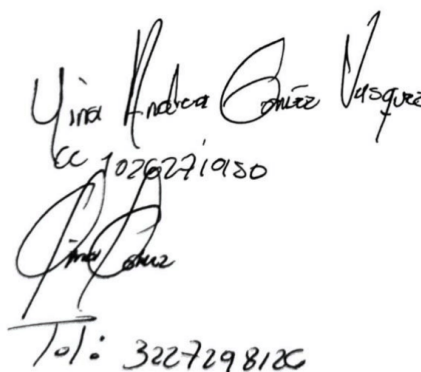 Yina Andrea Gomez Vasquez
CC 1026271950
Yina Gomez
Tel: 3227298126